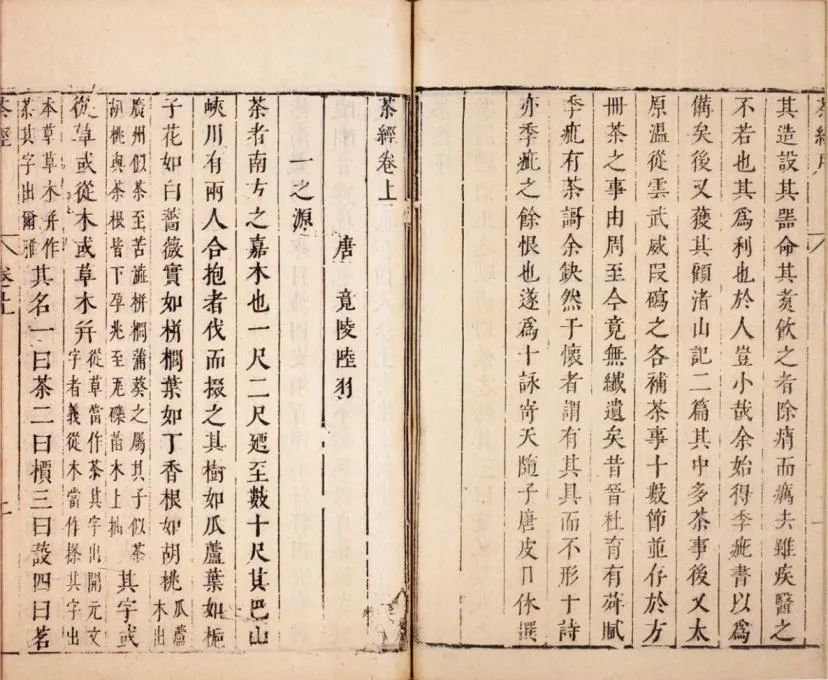 其造設其器命其煑飲之者除痟而癘去雖疾醫之
不若也其爲利也於人豈小哉余始得季疵書以爲
備矣後又獲其顧渚山記二篇其中多茶事後又太
原溫從雲武威叚碣之各補茶事十數節並存於方
冊茶之事由周至今竟無纖遺矣昔晉杜育有荈賦
季疵有茶謌余缺然于懷者謂有其具而不形十詩
亦季疵之餘恨也遂爲十詠寄天隨子唐皮日休譔
茶經卷上
唐 竟陵陸羽
一之源
茶者南方之嘉木也一尺二尺廼至數十尺其巴山
峽川有兩人合抱者伐而掇之其樹如瓜蘆葉如梔
子花如白薔薇實如栟櫚葉如丁香根如胡桃瓜蘆木出
廣州似茶至苦澁栟櫚蒲葵之屬其子似茶胡桃與茶根皆下孕兆至瓦礫苗木上抽其字或
從草或從木或草木并從草當作茶其字出開元文字者義從木當作搽其字出
本草草木并作荼其字出爾雅其名一曰茶二曰檟三曰蔎四曰茗
茶經 卷上